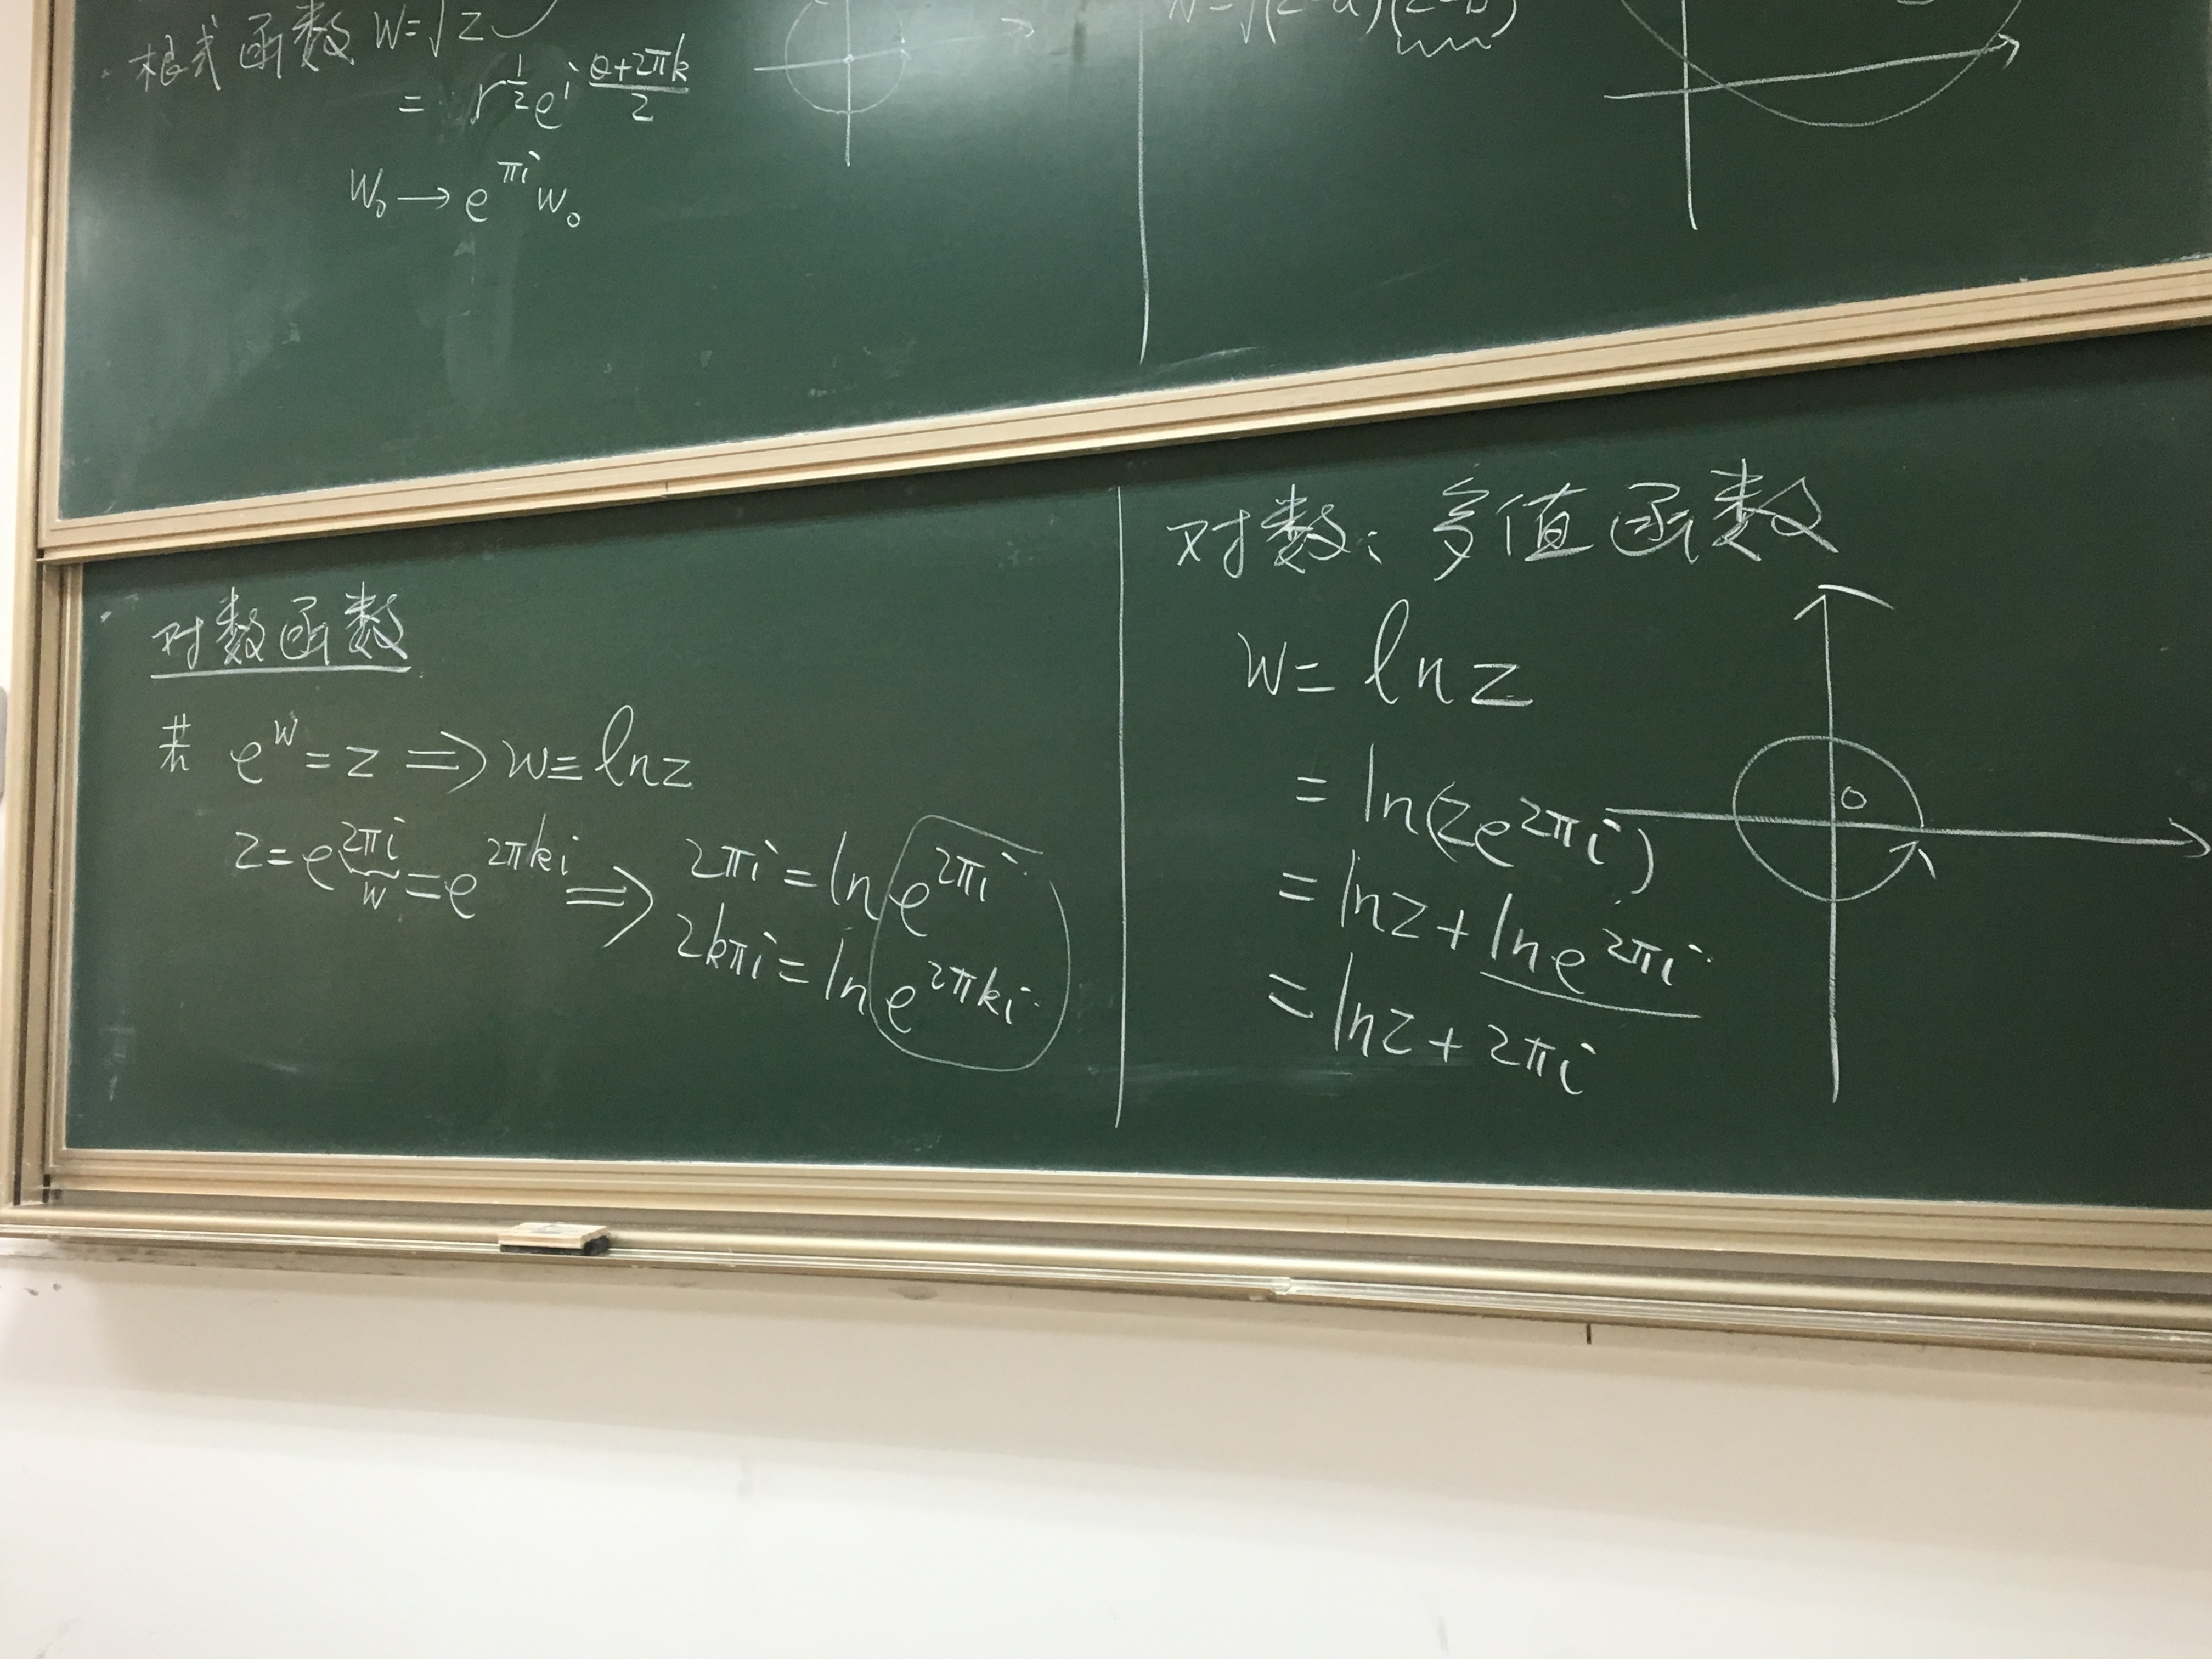 · 根式函数 W=√z
= r^{1/2} e^{i (θ+2πk)/2}
W₀ → e^{πi} w₀
W=√(z-a)(z-b)
对数函数
若 e^w = z ⇒ w = ln z
z = e^{2πi} = e^{2πki} ⇒ 2πi = ln e^{2πi}
w
2kπi = ln e^{2πki}
对数: 多值函数
W = ln z
= ln(ze^{2πi})
= ln z + ln e^{2πi}
= ln z + 2πi
0